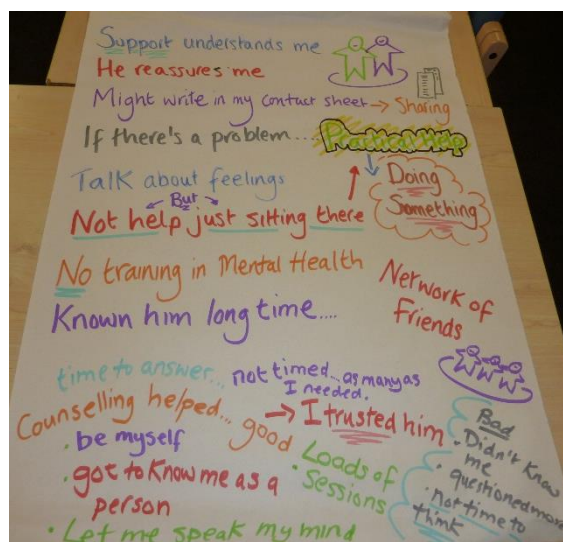 Support understands me
He reassures me
Might write in my contact sheet → Sharing
If there's a problem.... Practical Help
Talk about feelings
Doing
Something
But
Not help just sitting there
No training in Mental Health
Network of
Friends
Known him long time....
time to answer... not timed... as many as
I needed.
Counselling helped... good
→ I trusted him
• be myself
• got to know me as a
person
• Let me speak my mind
Loads of
• Sessions
Bad
• Didn't know
me
• questioned more
• not time to
think